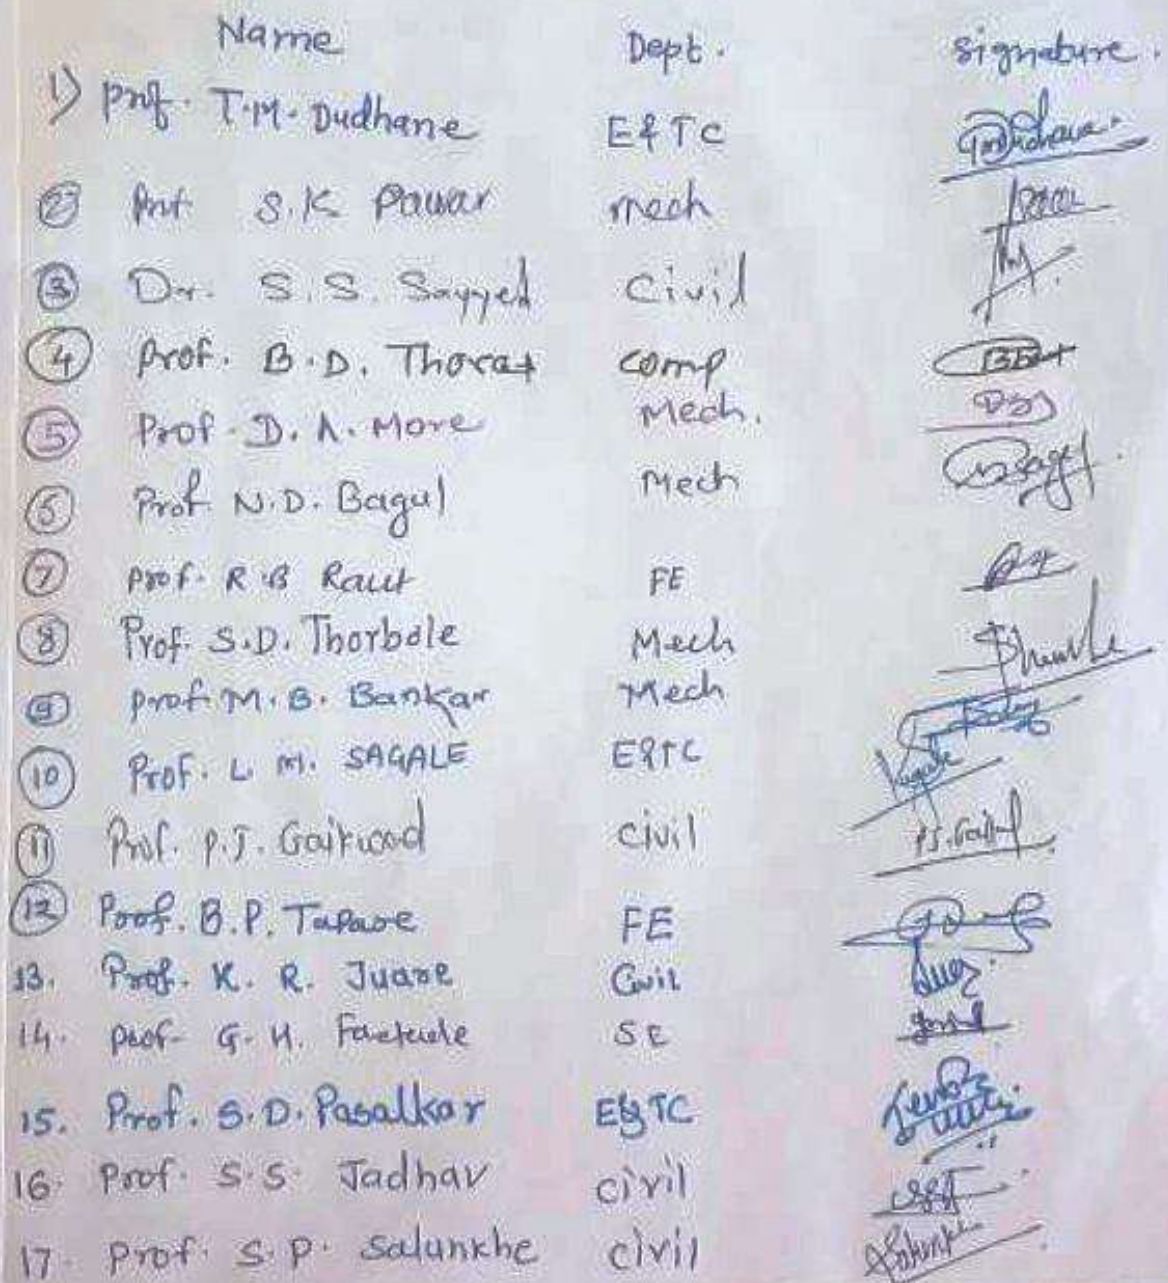 Name Dept. Signature.
1) Prof. T.M. Dudhane E&TC
2 Prof S.K Pawar mech
3 Dr. S.S. Sayyed Civil
4 Prof. B.D. Thorat comp
5 Prof. D.A. More Mech.
6 Prof. N.D. Bagul Mech
7 Prof. R.B Raut FE
8 Prof. S.D. Thorbole Mech
9 Prof. M.B. Bankar Mech
10 Prof. L.M. SAGALE E&TC
11 Prof. P.J. Gaikwad Civil P.J.Gaik
12 Prof. B.P. Tapare FE
13. Prof. K. R. Juare Civil
14. Prof- G. H. SE
15. Prof. S.D. Pasalkar E&TC
16. Prof. S.S. Jadhav civil
17. Prof. S.P. Salunkhe civil